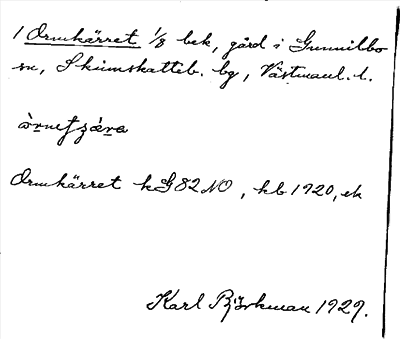 1 Ormkärret 1/8 bek, gård i Gunnilbo
sn, Skinnskatteb. bg, Västmanl. l.
Ormkärret kG82NO, kb 1920, ek
Karl Björkman 1929.